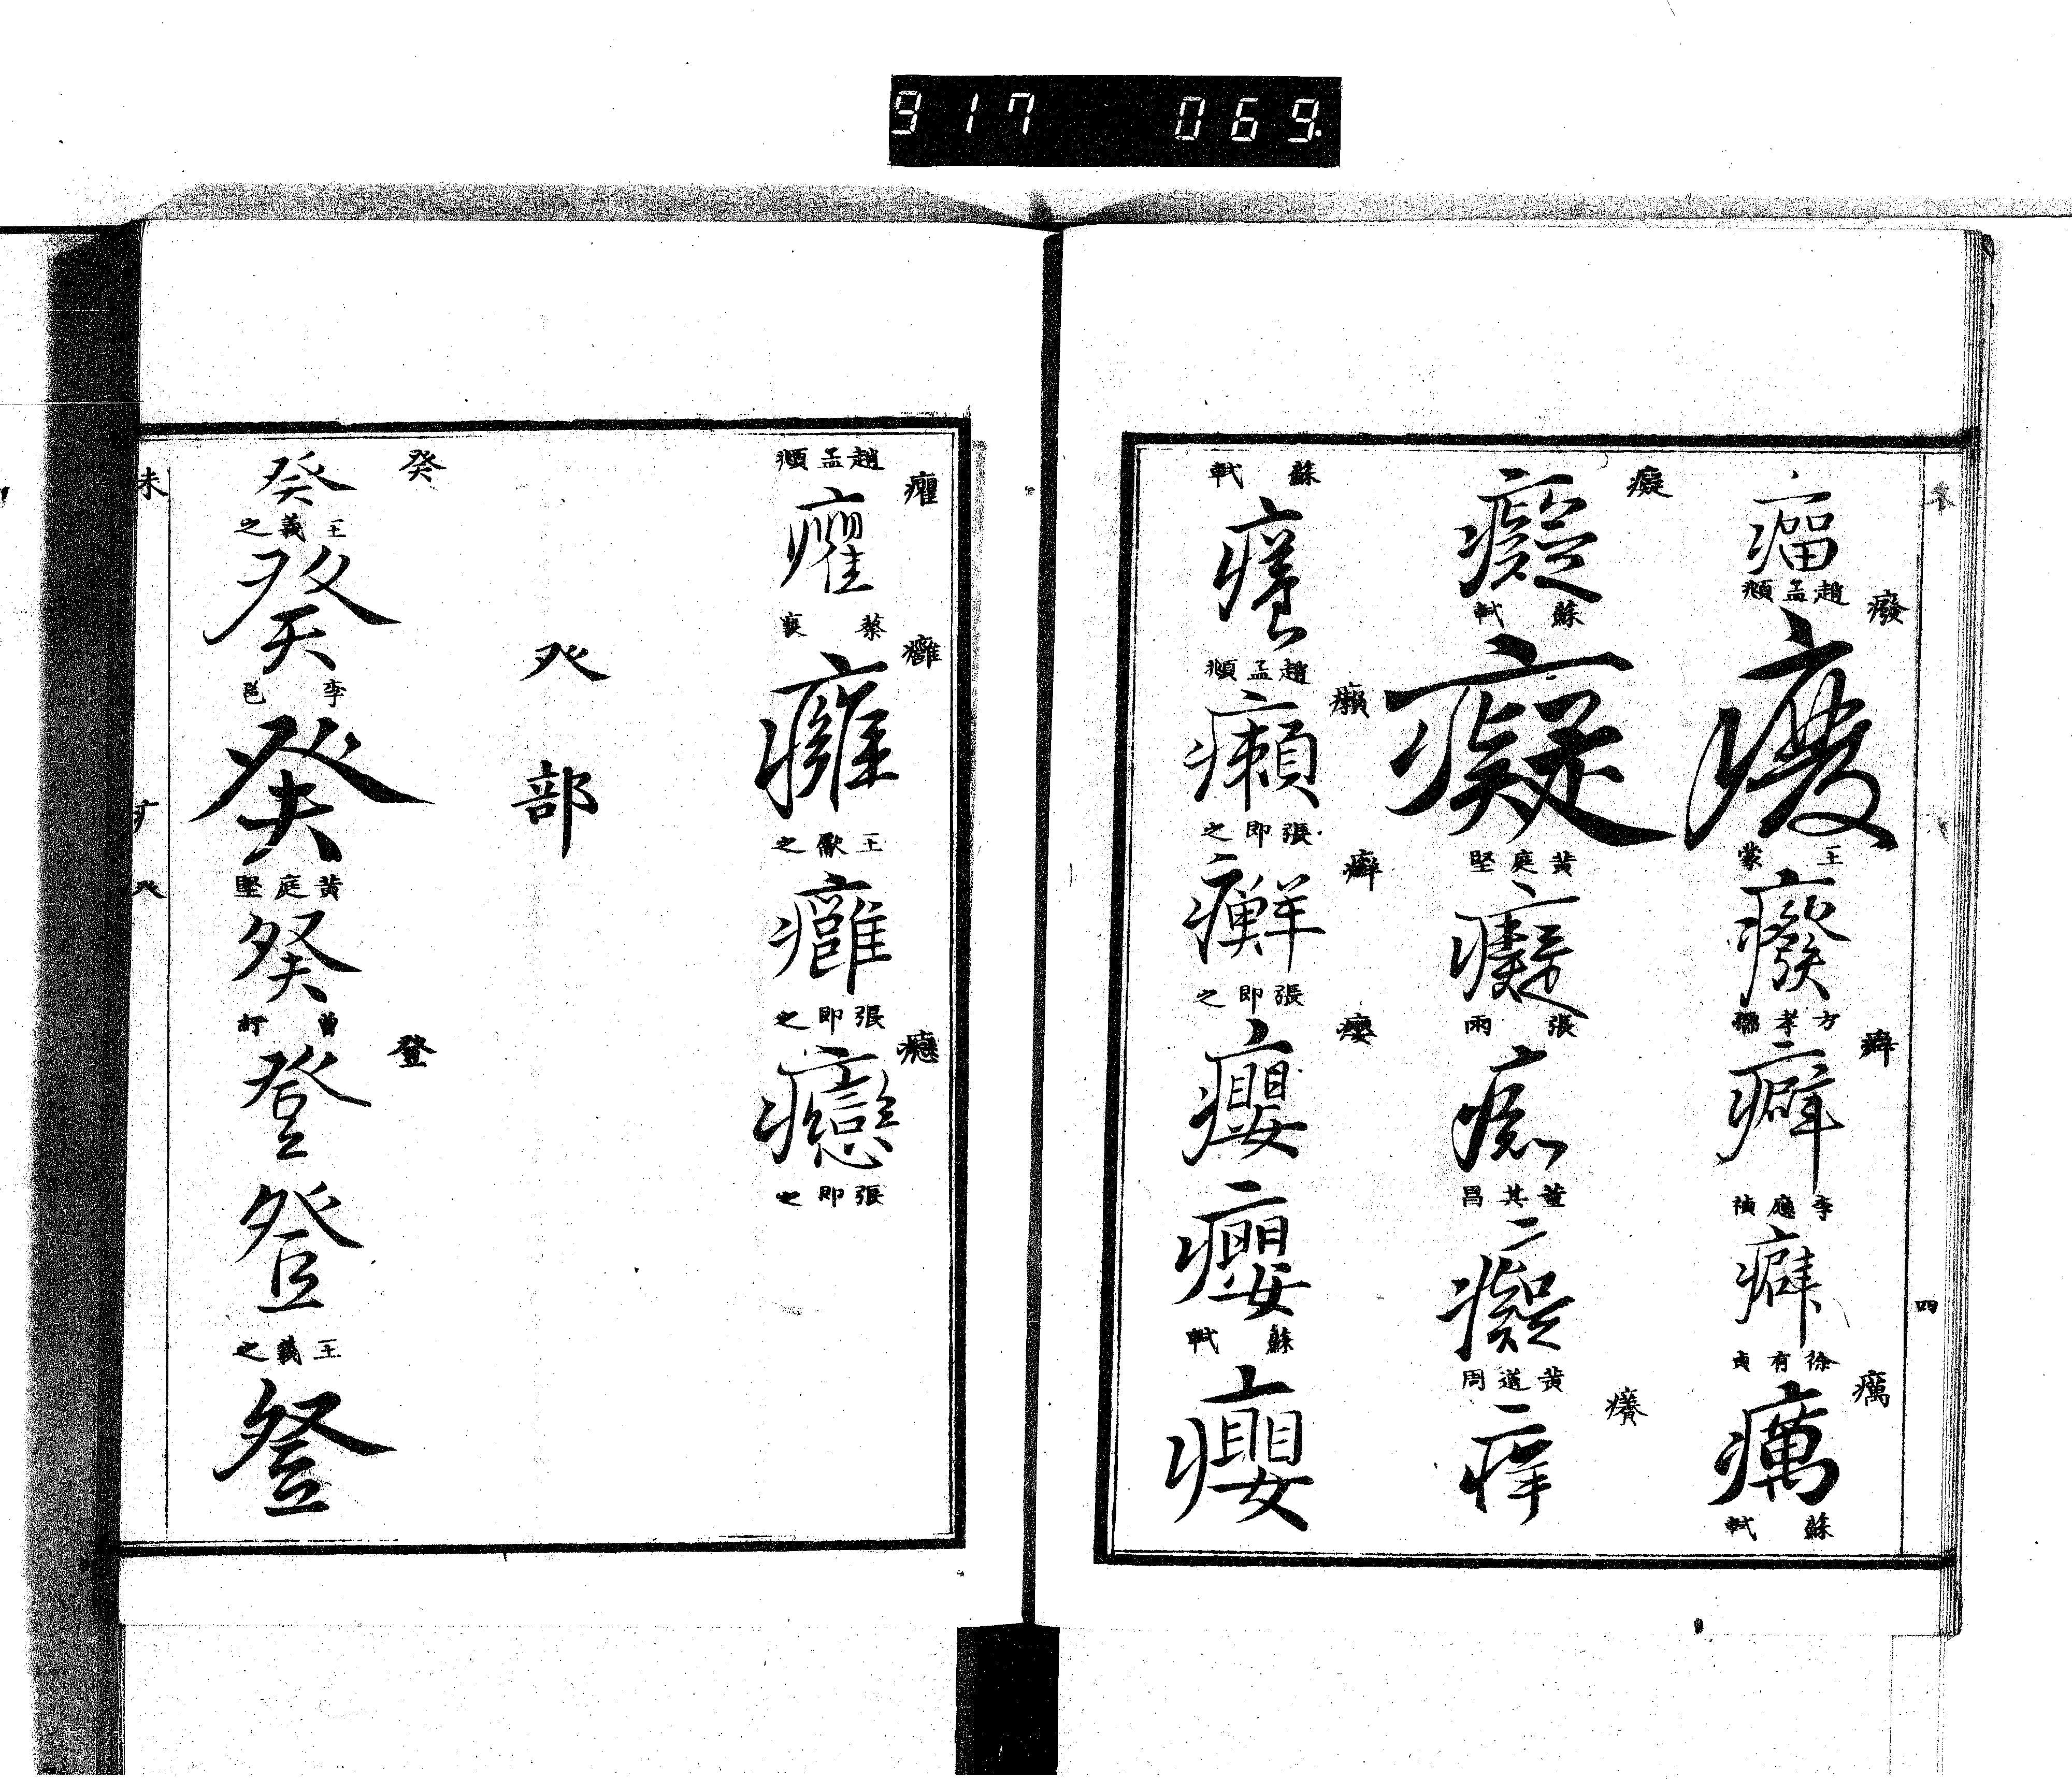 917 069.
瘤
趙孟頫
癈
癈
王蒙
癈
方孝孺
癖
癖
李應禎
癖
徐有貞
癘
癘
蘇軾
四
癡
癡
蘇軾
癡
黃庭堅
癡
張雨
痴
董其昌
癡
黃道周
癢
痒
蘇軾
癢
趙孟頫
癩
癩
張即之
癬
癬
張即之
癭
癭
癭
蘇軾
癭
癯
趙孟頫
癯
蔡襄
癰
癰
王獻之
癰
張即之
癮
張即之
癶部
癸
癸
王羲之
癸
李邕
癸
黃庭堅
癸
登
登
登
王羲之
登
未
疒
癶